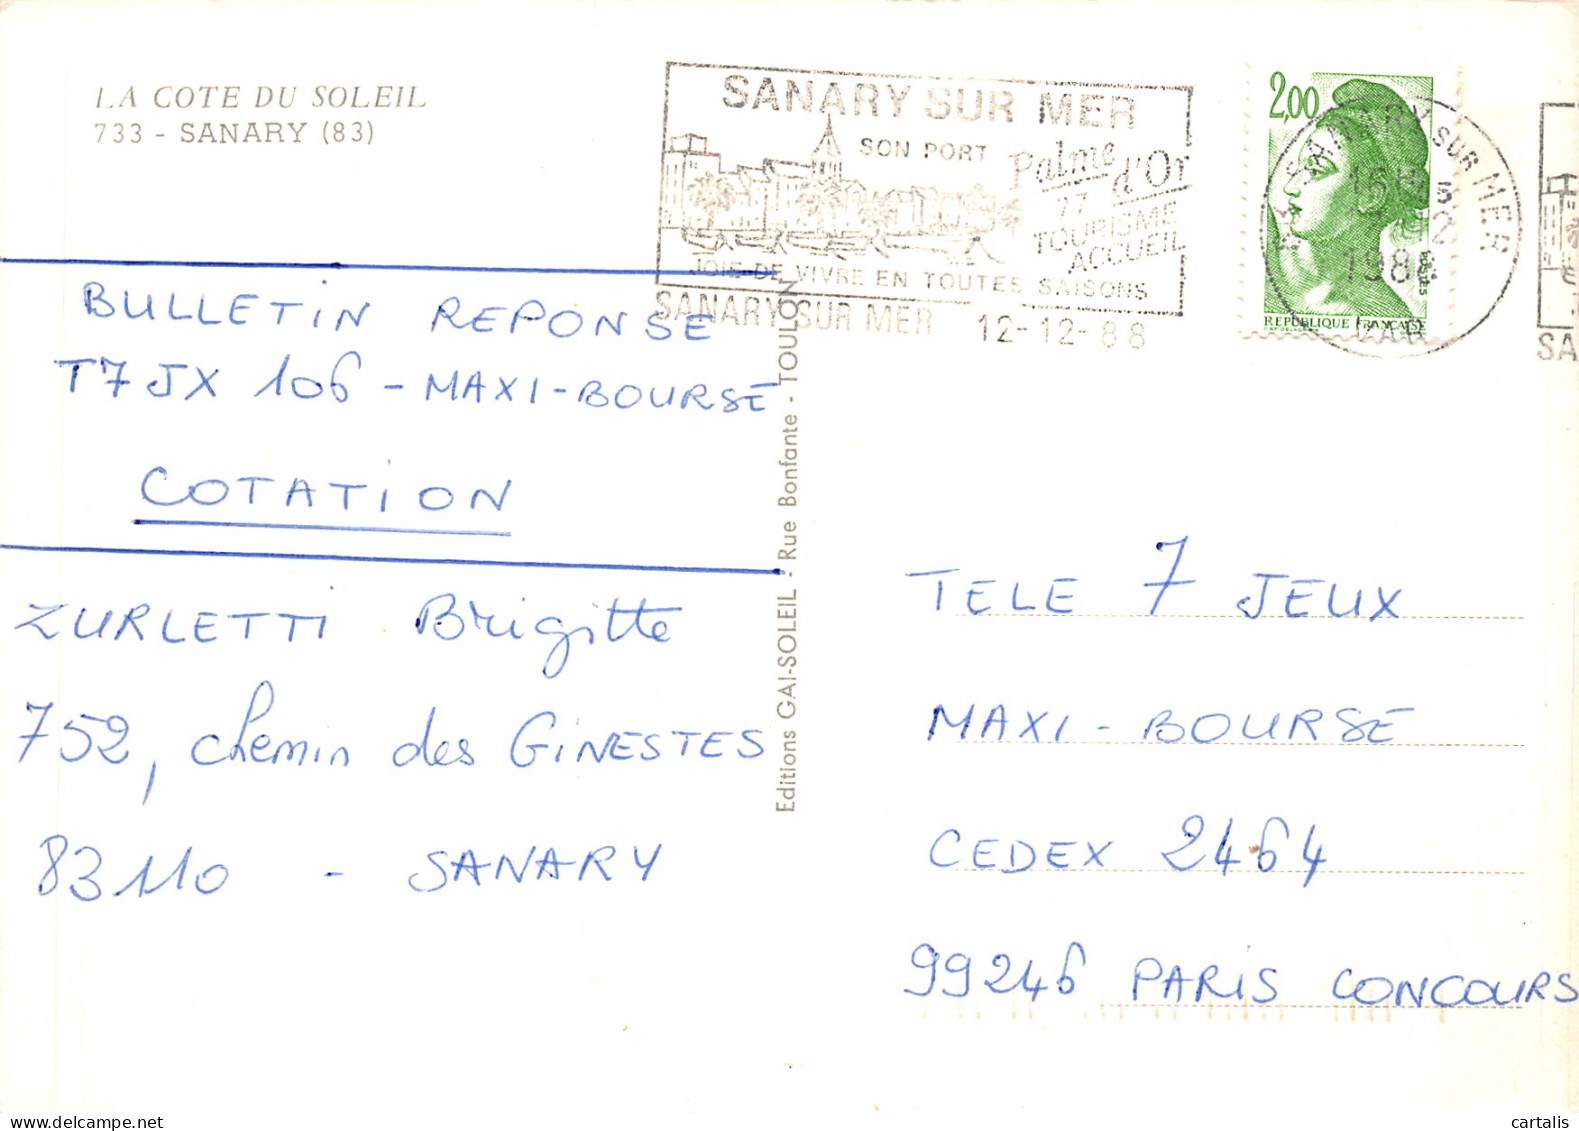 LA COTE DU SOLEIL
733 - SANARY (83)
SANARY SUR MER
SON PORT
Palme d'Or
77
TOURISME
ACCUEIL
JOIE DE VIVRE EN TOUTES SAISONS
SANARY SUR MER 12-12-88
2,00
POSTES
REPUBLIQUE FRANCAISE
SANARY SUR MER
1988
VAR
SA
BULLETIN REPONSE
T7JX 106 - MAXI-BOURSE
COTATION
ZURLETTI Brigitte
752, chemin des GINESTES
83110 - SANARY
Editions GAI-SOLEIL - Rue Bonfante - TOULON
TELE 7 JEUX
MAXI - BOURSE
CEDEX 2464
99246 PARIS CONCOURS
www.delcampe.net
cartalis